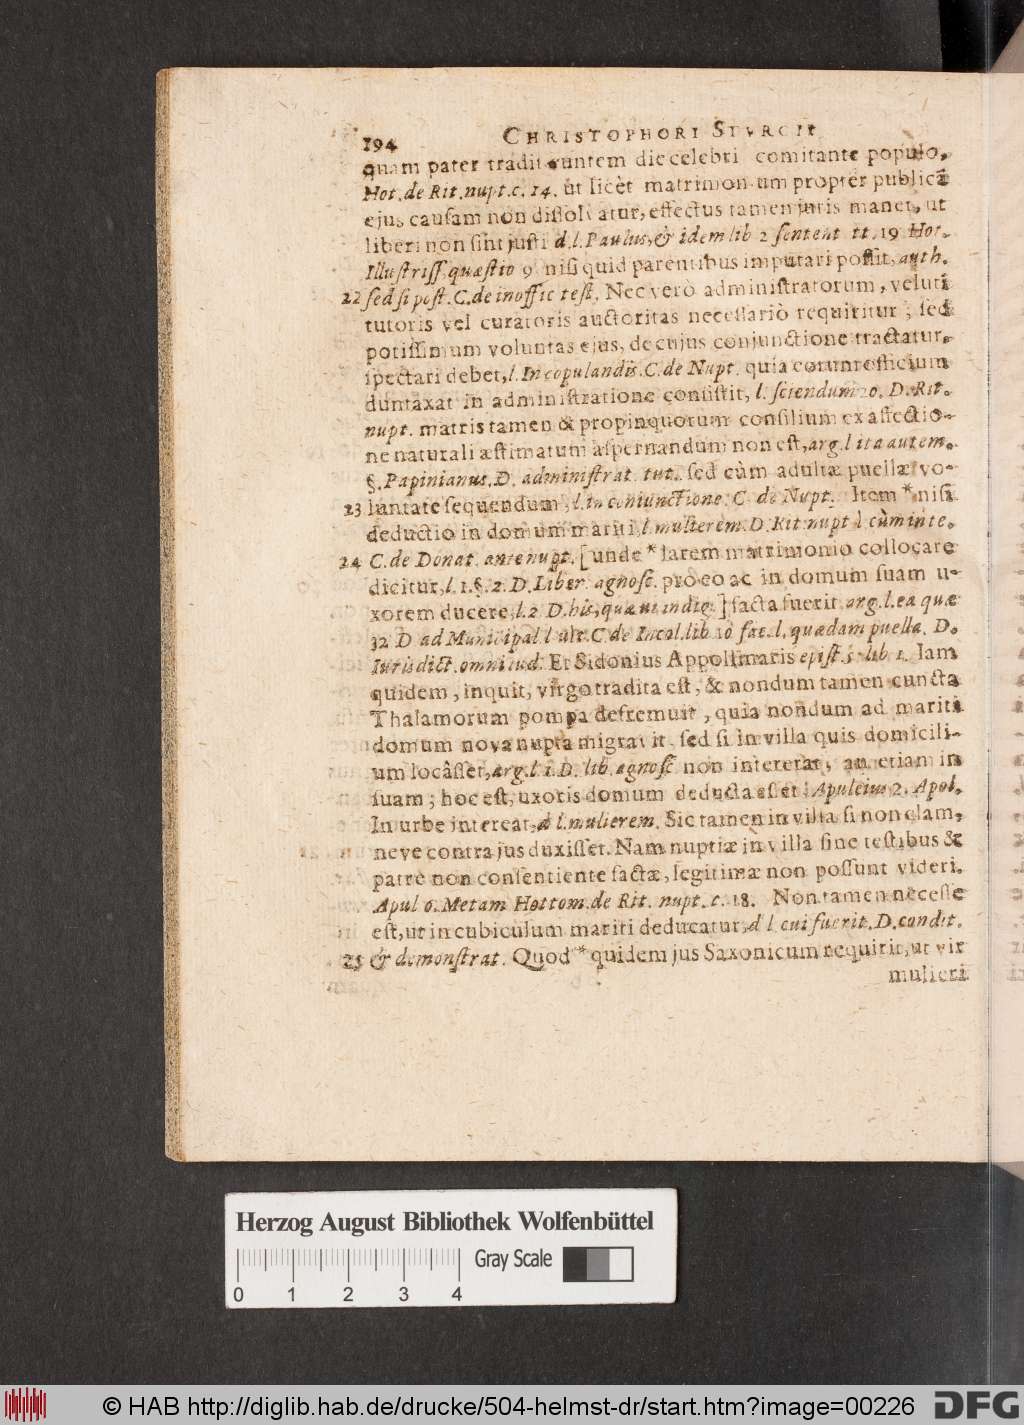 194 CHRISTOPHORI STVRCII
quam pater tradit euntem die celebri comitante populo,
Hot. de Rit. nupt. c. 14. ut licèt matrimonium propter publicã
ejus causam non dissolvatur, effectus tamen juris manet, ut
liberi non sint justi d. l. Paulus, & idem lib 2 sentent tt. 19 Hot.
Illustriss. quæstio 9 nisi quid parentibus imputari possit, auth.
22 sed si post. C. de inoffic test. Nec verò administratorum, veluti
tutoris vel curatoris auctoritas necessariò requiritur; sed
potissimum voluntas ejus, de cujus conjunctione tractatur,
spectari debet, l. In copulandis. C. de Nupt. quia eorum officium
duntaxat in administratione consistit, l. sciendum 20. D. Rit.
nupt. matris tamen & propinquorum consilium ex affectio-
ne naturali æstimatum aspernandum non est, arg. l ita autem.
§. Papinianus. D. administrat. tut. sed cùm adultæ puellæ vo-
23 luntate sequendum, l. in coniunctione. C. de Nupt. Item * nisi
deductio in domum mariti l. mulierem. D. Rit nupt l cùm in te.
24 C. de Donat. ante nupt. [unde * larem matrimonio collocare
dicitur, l. 1. §. 2. D. Liber. agnosc. pro eo ac in domum suam u-
xorem ducere, l. 2 D. his, quæ ut indig.] facta fuerit arg. l. ea quæ
32 D ad Municipal l ult. C. de Incol. lib 10 fac. l. quædam puella. D.
Iurisdict. omni iud. Et Sidonius Appollinaris epist. 5 lib 1. Iam
quidem, inquit, virgo tradita est, & nondum tamen cuncta
Thalamorum pompa defremuit, quia nondum ad mariti
domum nova nupta migravit, sed si in villa quis domicili-
um locâsset, arg. l 1. D. lib. agnosc non intererat, an etiam in
suam; hoc est, uxoris domum deducta esset Apuleius 2. Apol.
In urbe intereat, d l. mulierem. Sic tamen in villa si non clam,
neve contra jus duxisset. Nam nuptiæ in villa sine testibus &
patre non consentiente factæ, legitimæ non possunt videri.
Apul 6. Metam Hottom. de Rit. nupt. c. 18. Non tamen necesse
est, ut in cubiculum mariti deducatur, d l cui fuerit. D. condit.
25 & demonstrat. Quod * quidem jus Saxonicum requirit, ut vir
mulieri
Herzog August Bibliothek Wolfenbüttel
0 1 2 3 4
Gray Scale
© HAB http://diglib.hab.de/drucke/504-helmst-dr/start.htm?image=00226
DFG